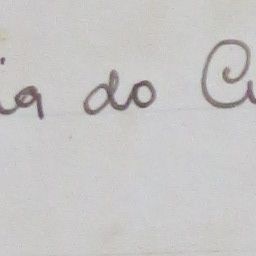 ia do Cu